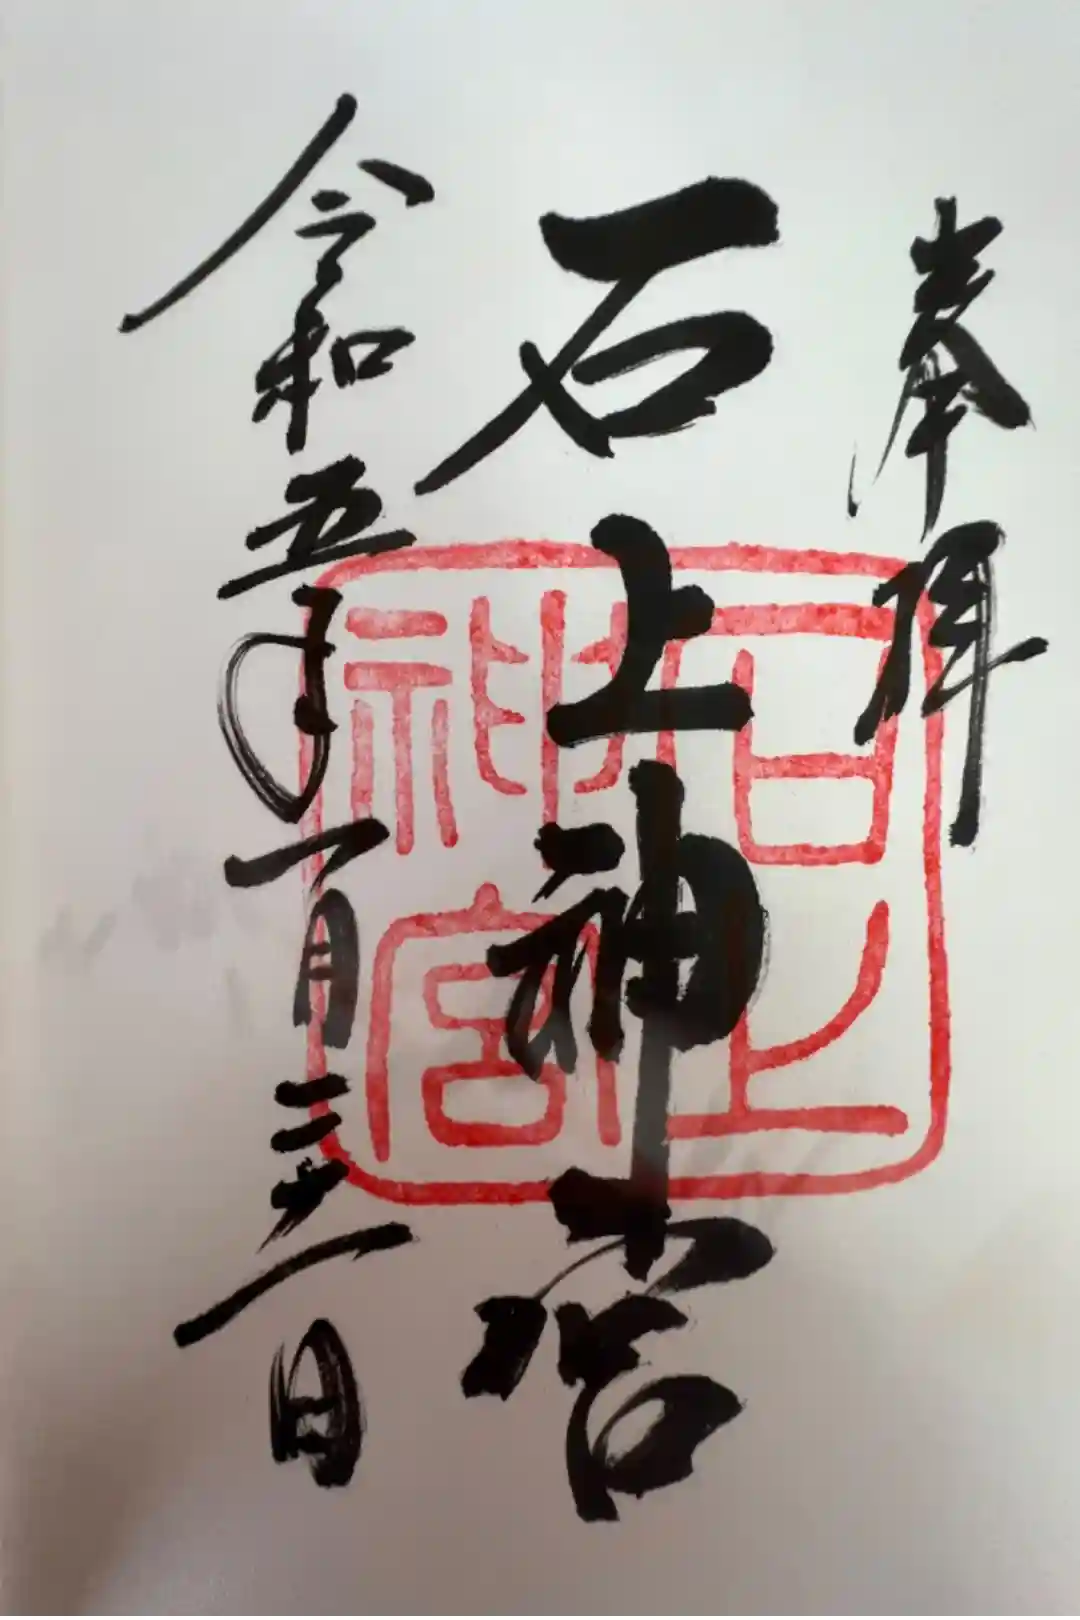 奉拝
石上神宮
令和五年一月三十一日
石上
神宮